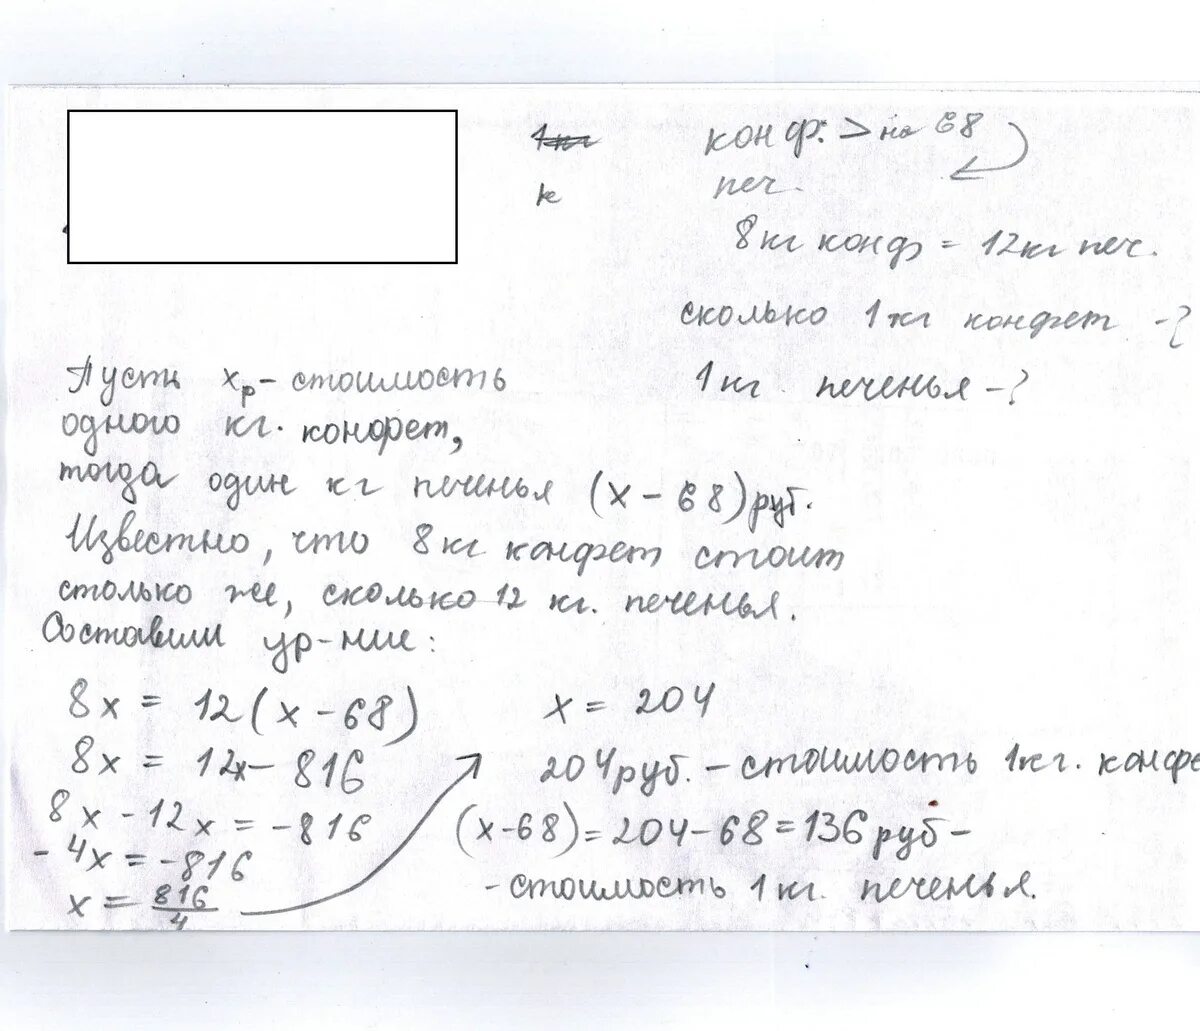 конф. > на 68
к печ.
8 кг конф = 12 кг печ.
сколько 1 кг конфет - ?
1 кг печенья - ?
Пусть x р - стоимость
одного кг. конфет,
тогда один кг печенья (x - 68) руб.
Известно, что 8 кг конфет стоит
столько же, сколько 12 кг. печенья.
Составим ур-ние:
8x = 12(x - 68)
8x = 12x - 816
8x - 12x = -816
-4x = -816
x = 816/4
x = 204
204 руб. - стоимость 1 кг. конфе
(x - 68) = 204 - 68 = 136 руб -
- стоимость 1 кг. печенья.